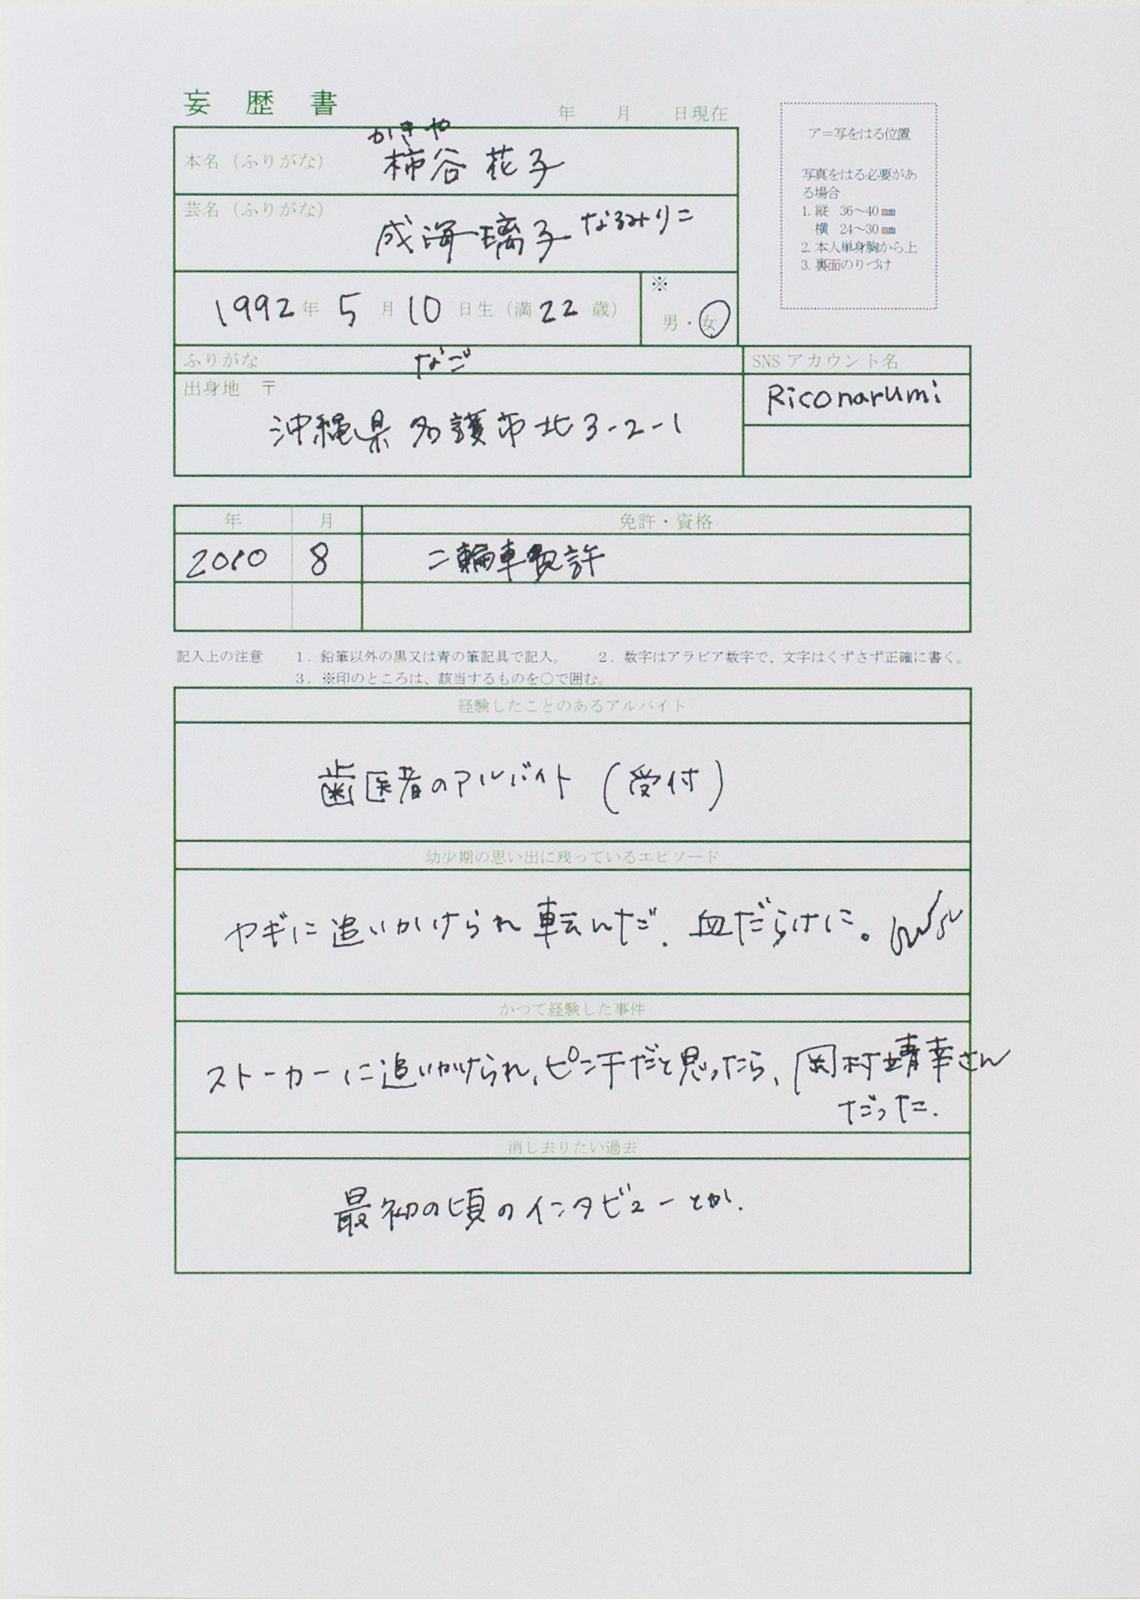 妄歴書
年　月　日現在
かきや
本名（ふりがな）　柿谷 花子
芸名（ふりがな）　成海璃子 なるみりこ
1992年 5月 10日生（満22歳）
※
男・女
ア＝写をはる位置
写真をはる必要があ
る場合
1. 縦 36～40㎜
横 24～30㎜
2. 本人単身胸から上
3. 裏面のりづけ
ふりがな　なご
出身地 〒
沖縄県名護市北3-2-1
SNS アカウント名
Riconarumi
年　月　免許・資格
2010　8　二輪車免許
記入上の注意　1．鉛筆以外の黒又は青の筆記具で記入。　2．数字はアラビア数字で、文字はくずさず正確に書く。
3．※印のところは、該当するものを○で囲む。
経験したことのあるアルバイト
歯医者のアルバイト（受付）
幼少期の思い出に残っているエピソード
ヤギに追いかけられ転んだ、血だらけに。
かつて経験した事件
ストーカーに追いかけられ、ピンチだと思ったら、岡村靖幸さん
だった.
消し去りたい過去
最初の頃のインタビューとか.